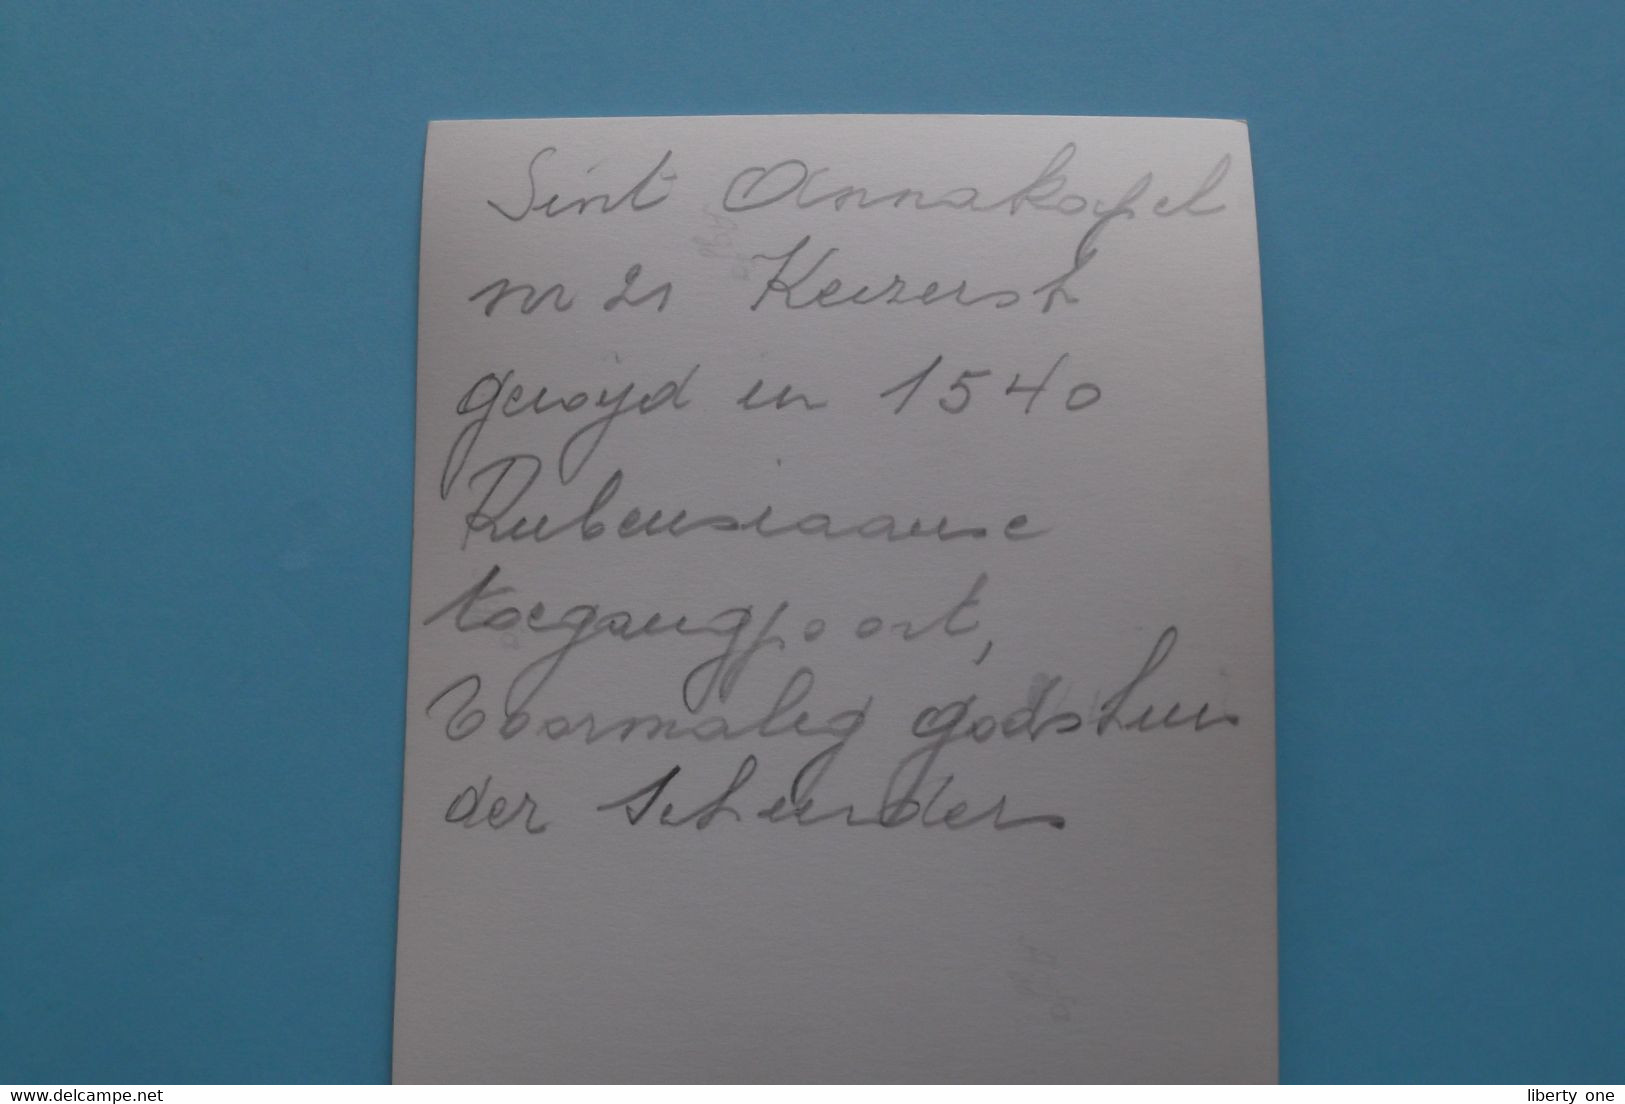 Sint Annakapel
nr 21 Keizerst
gewijd in 1540
Rubensiaanse
toegangpoort,
voormalig godshuis
der scheerders
delcampe.net
liberty one